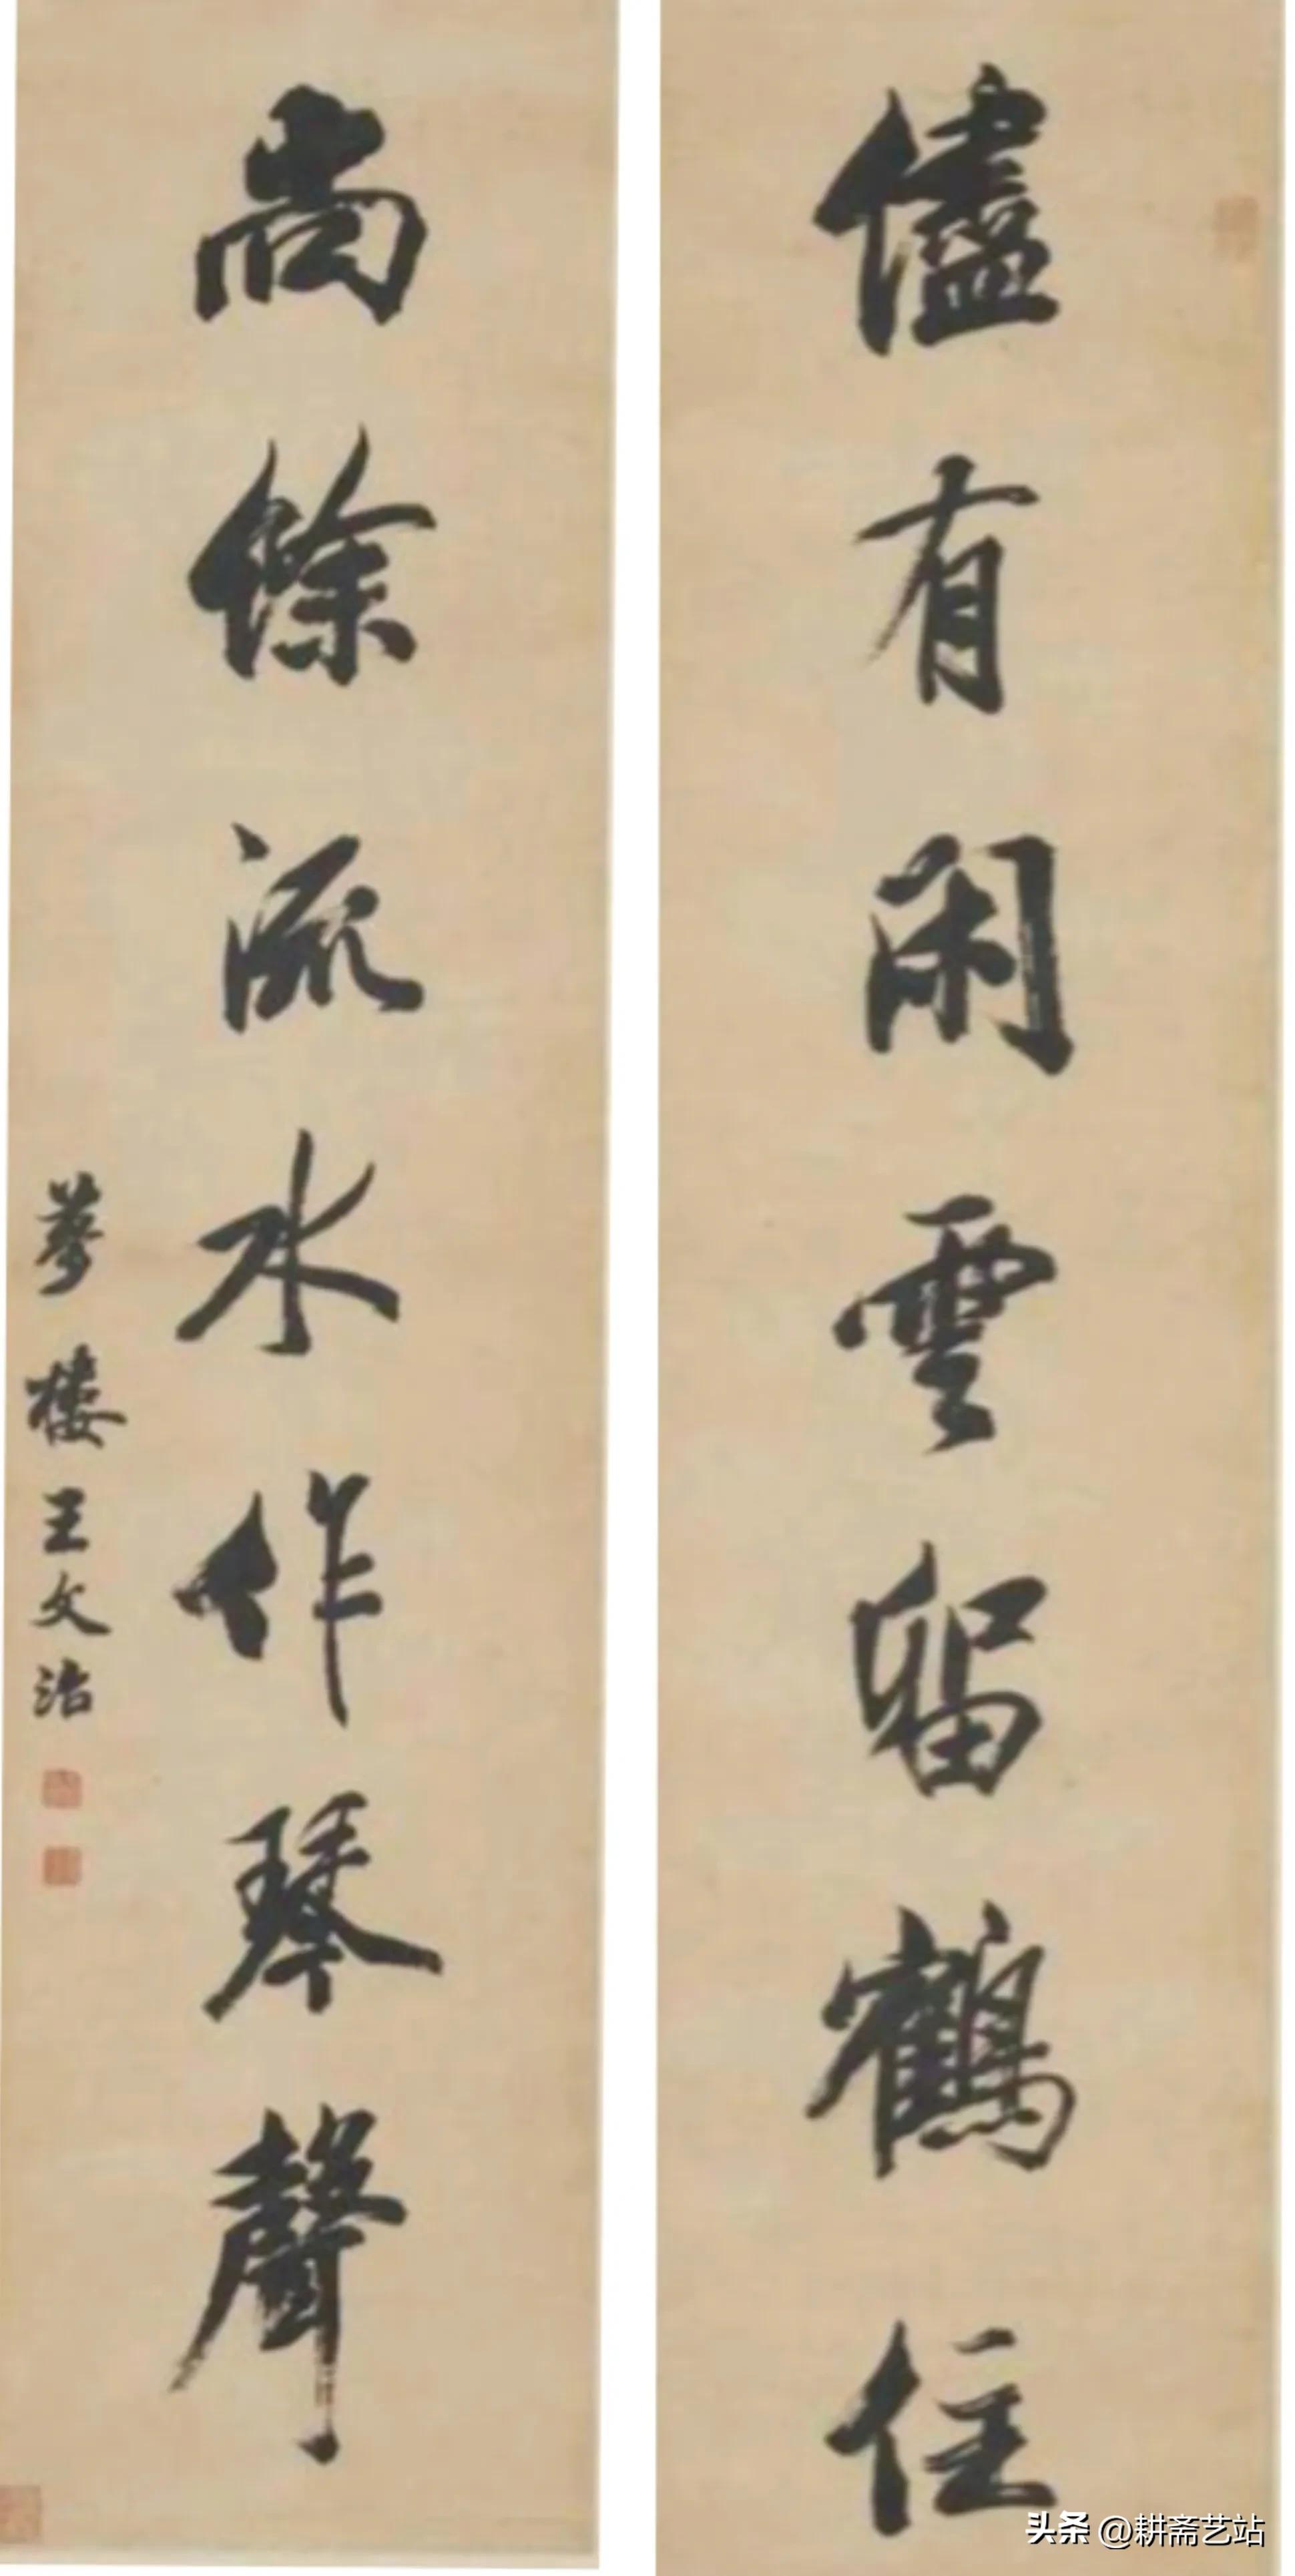 儘有閑雲留鶴住
尚餘流水作琴聲
夢樓王文治
头条 @耕斋艺站